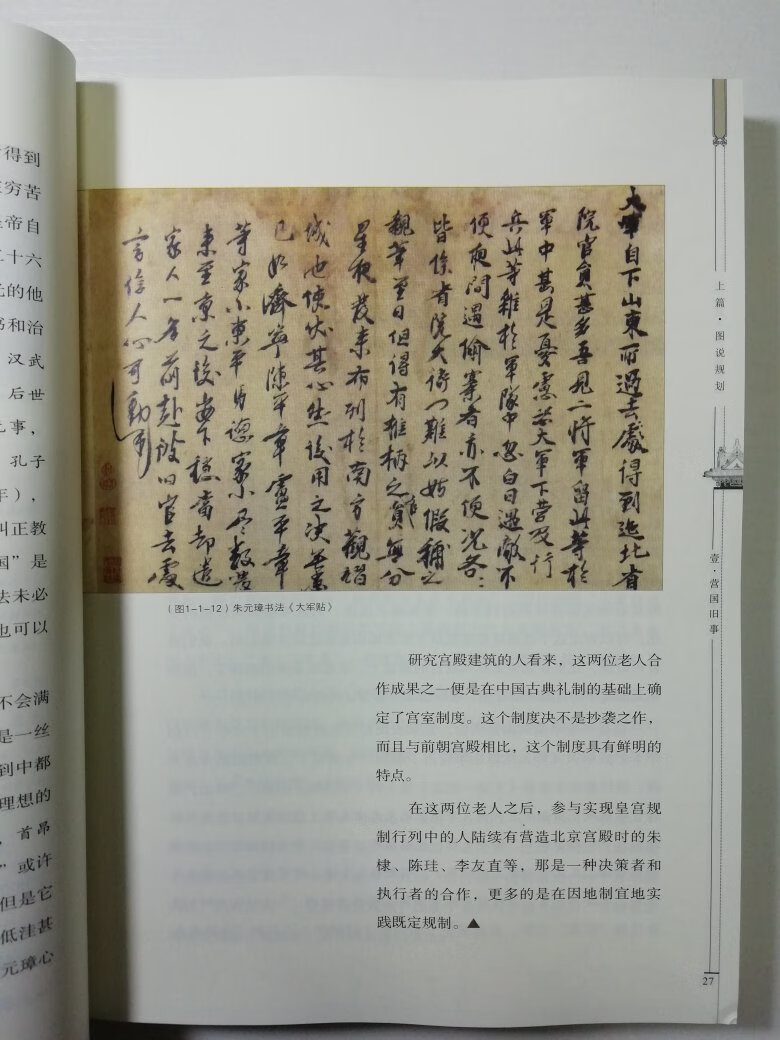 得到
穷苦
帝自
二十六
元的他
书和治
汉武
后世
事，
孔子
年），
叫正教
国”是
法未必
也可以
不会满
是一丝
到中都
理想的
，首昂
”或许
但是它
低洼甚
元璋心
大軍自下山東所過去處得到迤北省
院官員甚多吾見二將軍留此等於
軍中甚是憂慮恐大軍下營及行
兵此等雜於軍隊中忽白日遇敵不
便夜間遇偷寨者亦不便況各各
皆係省院大衙門難以姑假補之
親筆至日但得有椎柄之員無分
星夜發來布列於南方觀
城池使伏其心然後用之決無患
已如濟寧陳平章盧平章
等家小東平馬德家小尽数發
來至京之後安下穩當却遣
家人一名前赴彼旧官去處
言信人心可動
（图1-1-12）朱元璋书法《大军贴》
研究宫殿建筑的人看来，这两位老人合
作成果之一便是在中国古典礼制的基础上确
定了宫室制度。这个制度决不是抄袭之作，
而且与前朝宫殿相比，这个制度具有鲜明的
特点。
在这两位老人之后，参与实现皇宫规
制行列中的人陆续有营造北京宫殿时的朱
棣、陈珪、李友直等，那是一种决策者和
执行者的合作，更多的是在因地制宜地实
践既定规制。▲
上篇·图说规划
壹·营国旧事
27